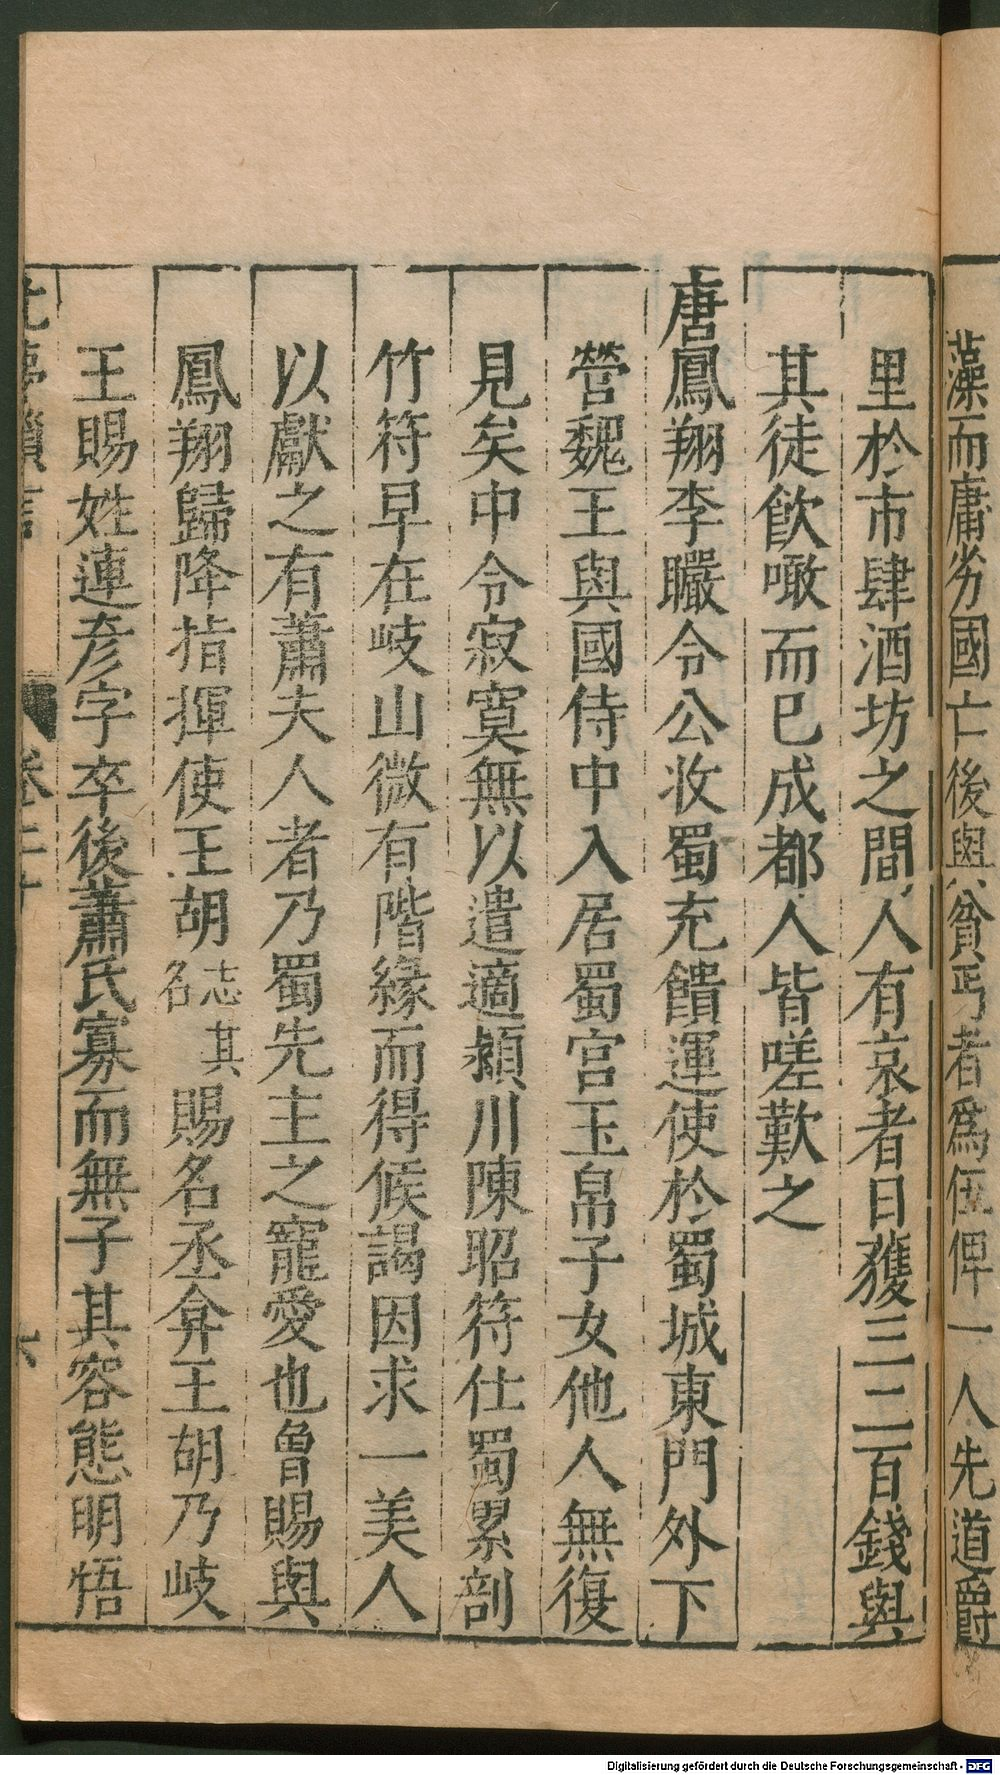 藻而庸劣國亡後與貧丐者為伍俾一人先道爵
里於市肆酒坊之間人有哀者日獲三二百錢與
其徒飲噉而已成都人皆嗟歎之
唐鳳翔李曮令公收蜀充饋運使於蜀城東門外下
營魏王與國侍中入居蜀宮玉帛子女他人無復
見矣中令寂寞無以遣適潁川陳昭符仕蜀累剖
竹符早在岐山微有階緣而得候謁因求一美人
以獻之有蕭夫人者乃蜀先主之寵愛也曾賜與
鳳翔歸降指揮使王胡志其名賜名丞弇王胡乃岐
王賜姓連彥字卒後蕭氏寡而無子其容態明悟
北夢瑣言 卷二十 六
Digitalisierung gefördert durch die Deutsche Forschungsgemeinschaft - DFG